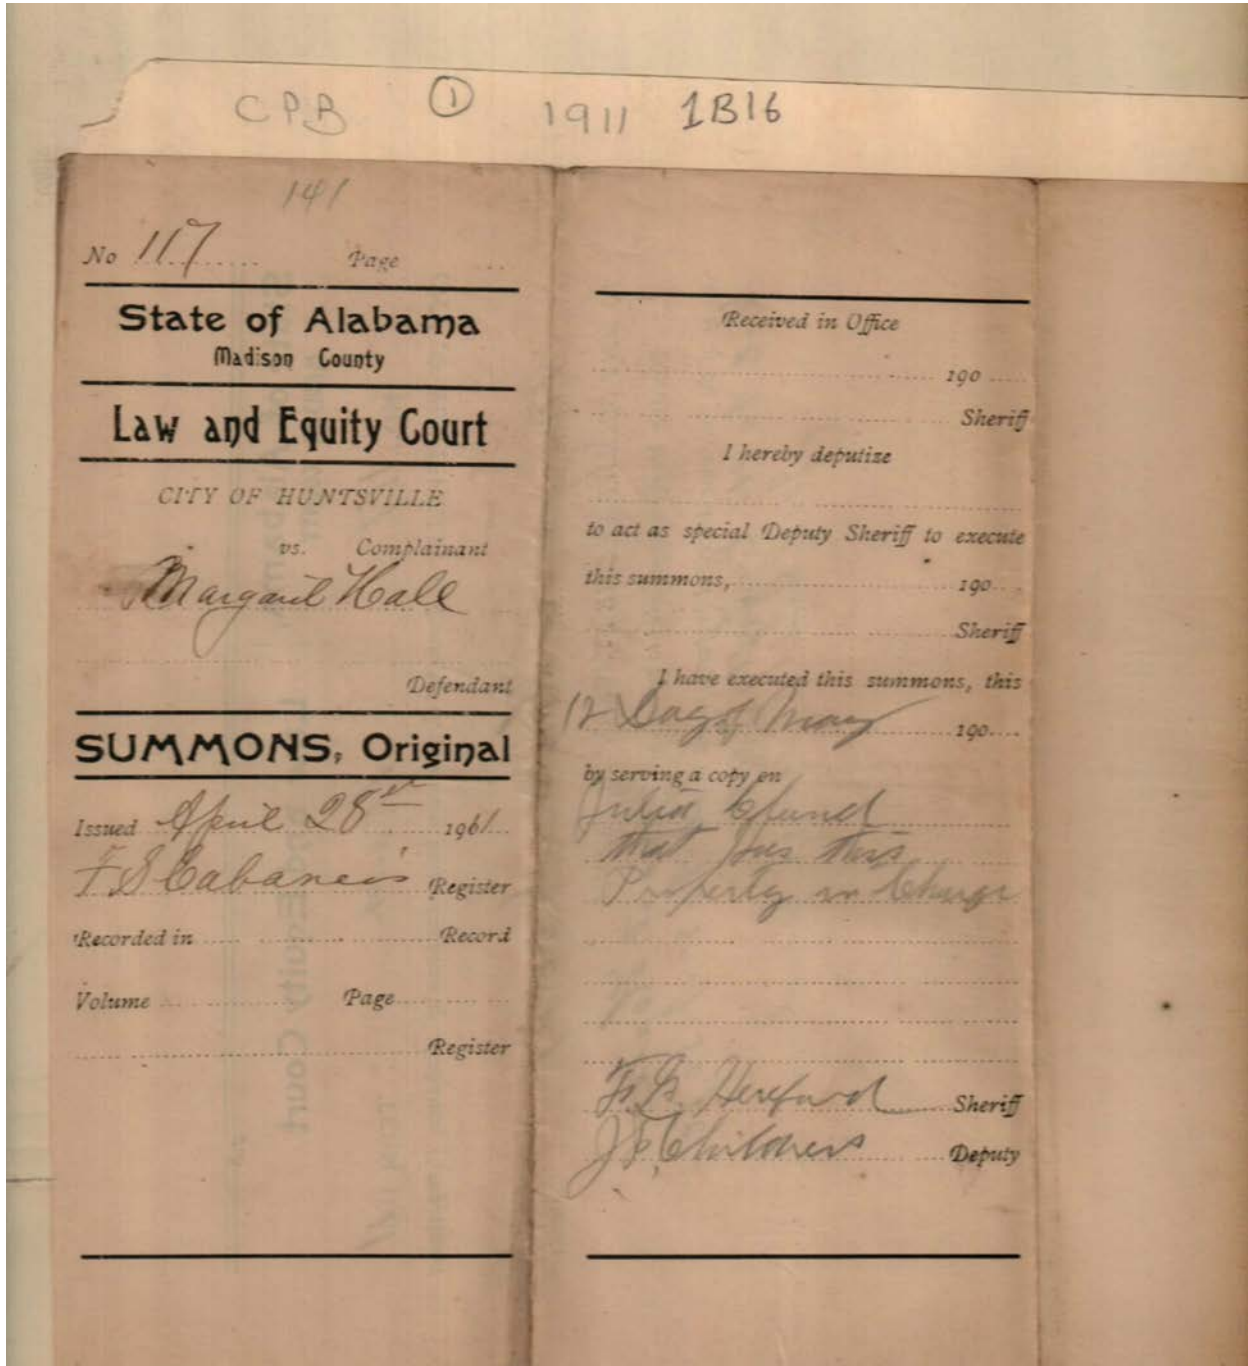 CPB 1 1911 1B16
141
No 117 Page
State of Alabama
Madison County
Law and Equity Court
CITY OF HUNTSVILLE
vs. Complainant
Margaret Hall
Defendant
SUMMONS, Original
Issued April 28th 1961
F S Cabaneis Register
Recorded in Record
Volume Page
Register
Received in Office
190
Sheriff
I hereby deputize
to act as special Deputy Sheriff to execute
this summons, 190
Sheriff
I have executed this summons, this
12 Day of May 190
by serving a copy on
Julia
that has this
Property in Charge
F. B. Hereford Sheriff
J E Childress Deputy